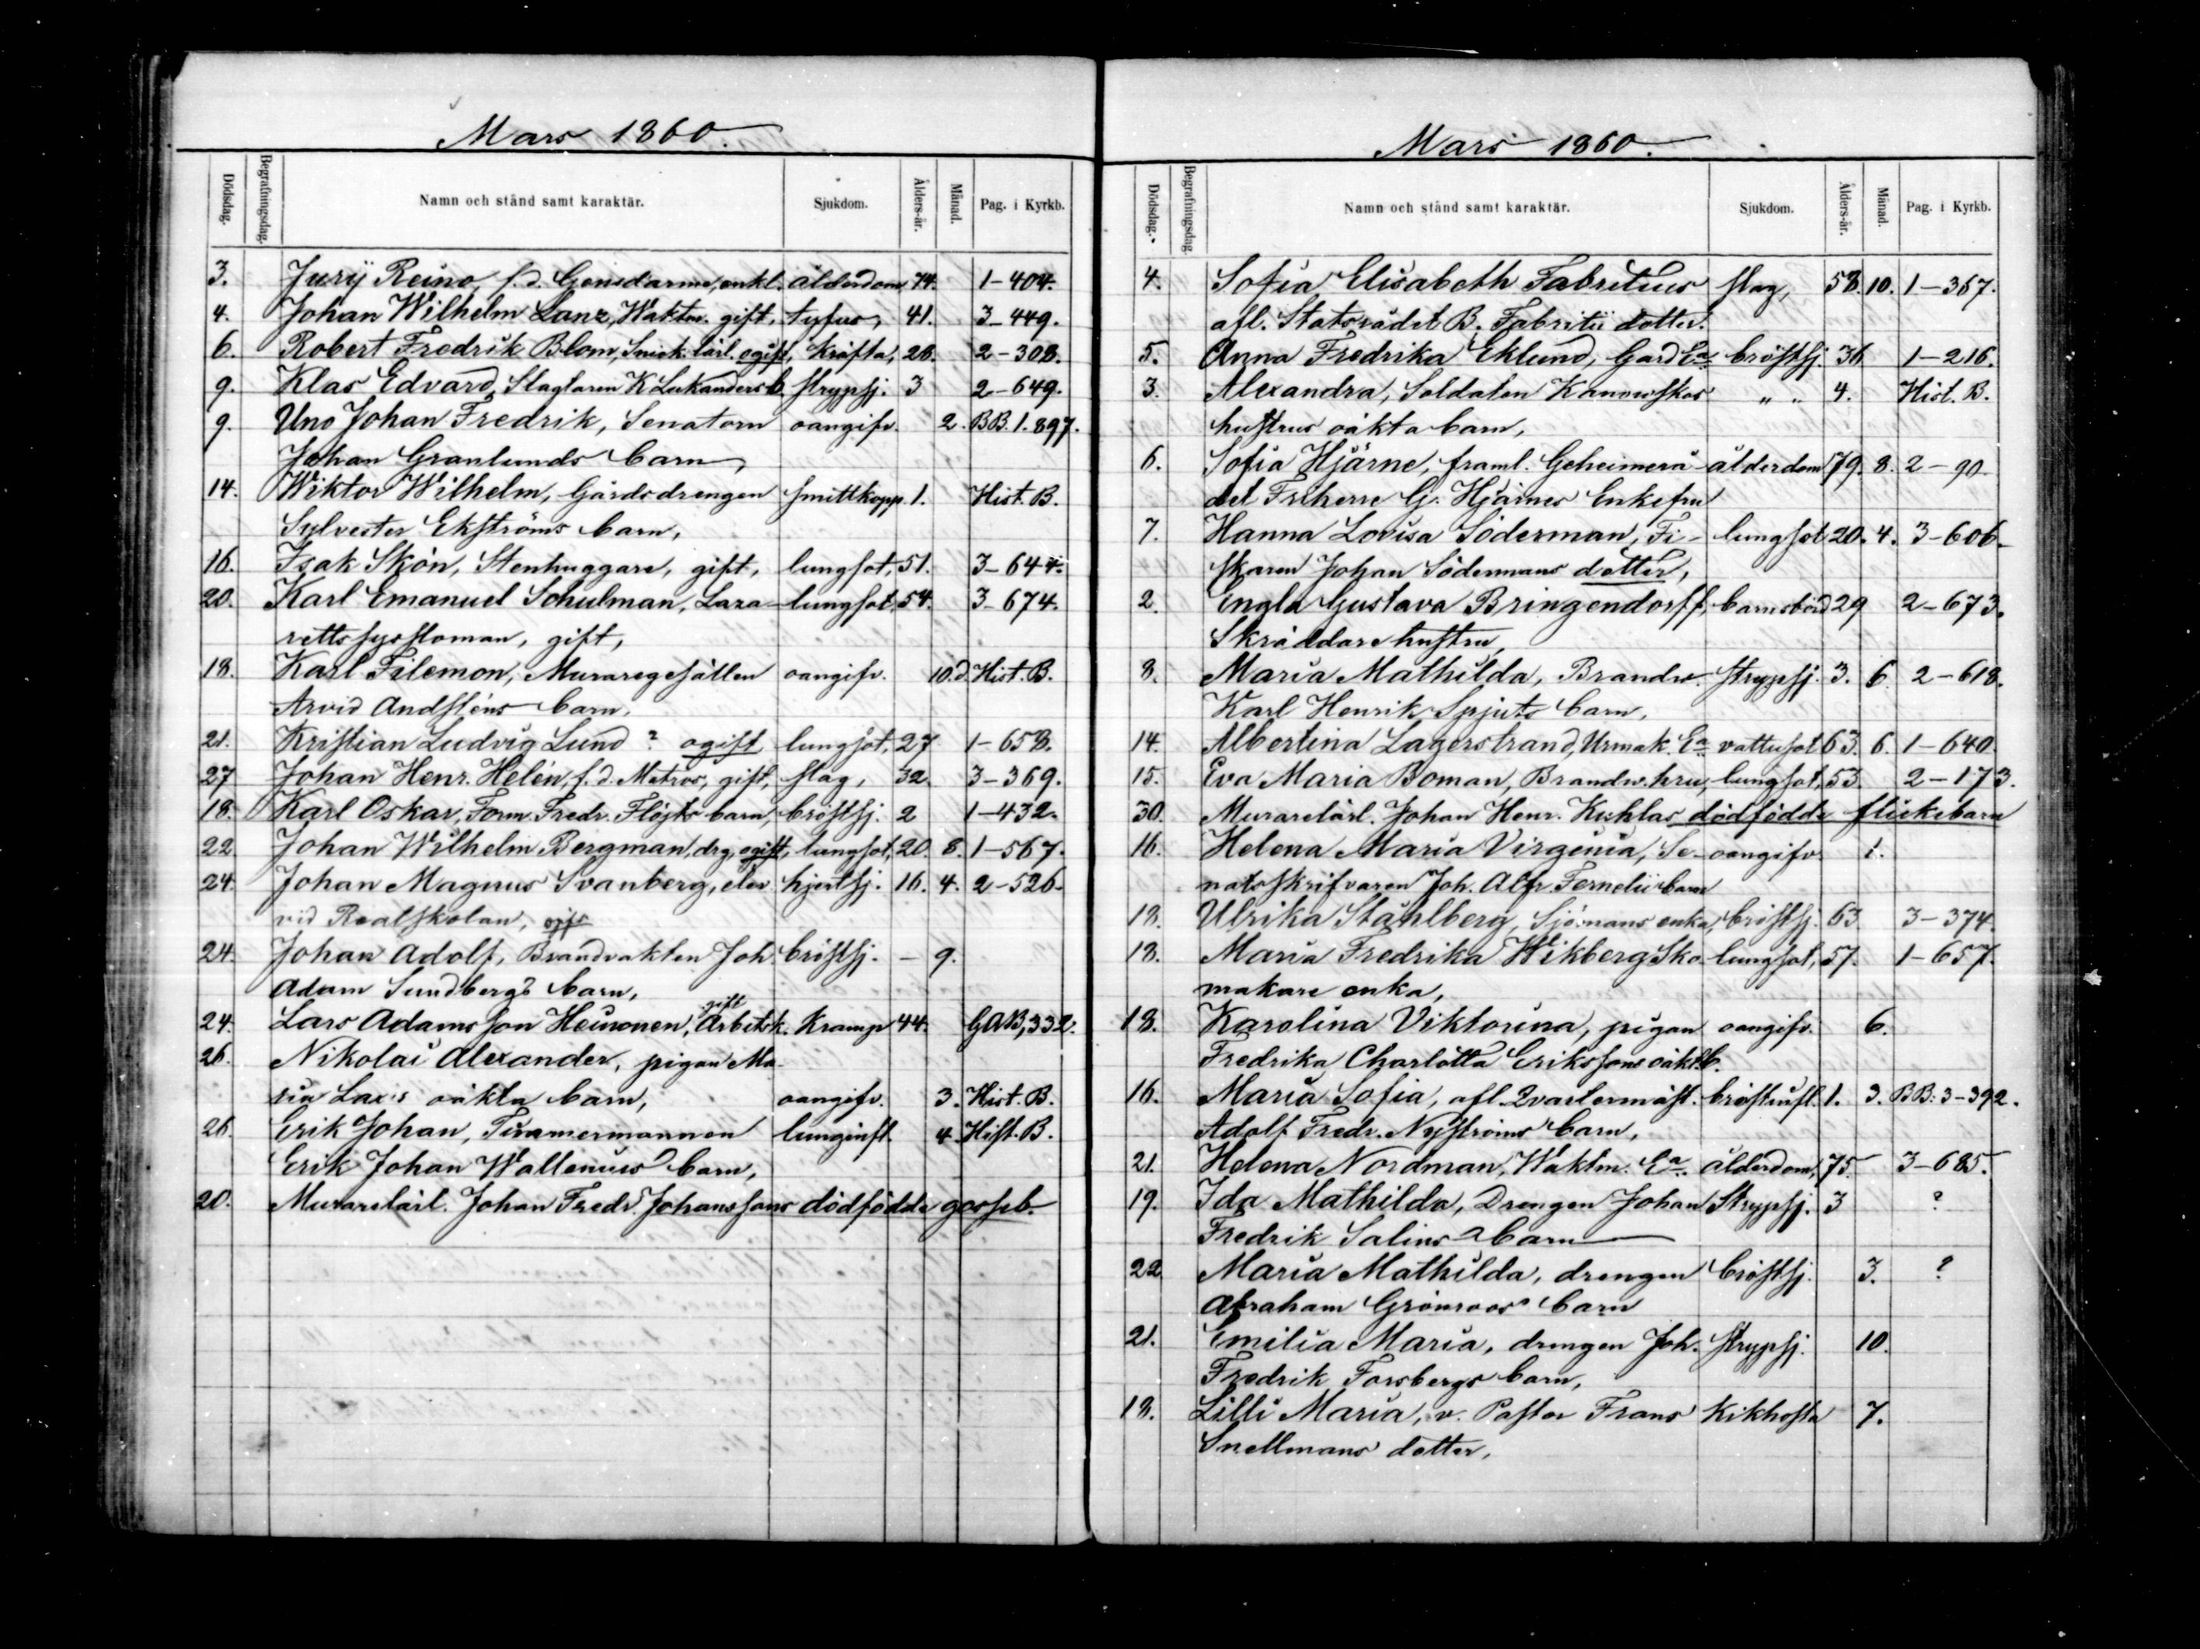 Mars 1860.
Dödsdag. Begrafningsdag. Namn och stånd samt karaktär. Sjukdom. Ålders-år. Månad. Pag. i Kyrkb.
3. Jurÿ Reino, f.d. Gensdarme, enkl. ålderdom 74. 1-404.
4. Johan Wilhelm Lanz, Waktm. gift, tyfus, 41. 3-449.
6. Robert Fredrik Blom, Snick. lärl. ogift, kräfta, 26. 2-308.
9. Klas Edvard, Slagtaren K Lukanders b. strypsj. 3 2-649.
9. Uno Johan Fredrik, Senatorn oangifv. 2. BB. 1. 897.
Johan Granlunds barn,
14. Wiktor Wilhelm, Gårdsdrengen smittkopp. 1. Hist. B.
Sylvester Ekströms barn,
16. Isak Skön, Stenhuggare, gift, lungsot, 51. 3-644.
20. Karl Emanuel Schulman, Laza- lungsot, 54. 3-674.
rettssyssloman, gift,
18. Karl Filemon, Muraregesällen oangifv. 10.d. Hist. B.
Arvid Andsténs barn.
21. Kristian Ludvig Lund ? ogift lungsot, 27 1-658.
27 Johan Henr. Helén, f.d. Matros, gift, slag, 32. 3-369.
18. Karl Oskar, Form. Fredr. Flöjts barn, bröstsj. 2 1-432.
22 Johan Wilhelm Bergman, drg, ogift, lungsot, 20. 8. 1-567.
24. Johan Magnus Svanberg, elev hjertsj. 16. 4. 2-526.
vid Realskolan, ogift
24. Johan Adolf, Brandvakten Joh. bröstsj. - 9.
Adam Sundbergs barn,
gift
24. Lars Adamsson Heinonen, Arbetsk. Kramp 44. GAB, 332.
26. Nikolai Alexander, pigan Ma-
ria Lax's oäkta barn, oangifv. 3. Hist. B.
26. Erik Johan, Timmermannen lunginfl. 4. Hist. B.
Erik Johan Wallenius barn,
20. Murarelärl. Johan Fredr. Johanssons dödfödde gosseb.
Mars 1860.
Dödsdag. Begrafningsdag Namn och stånd samt karaktär. Sjukdom. Ålders-år. Månad. Pag. i Kyrkb.
4. Sofia Elisabeth Fabritius slag, 58. 10. 1-367.
afl. Statsrådet B. Fabritii dotter.
5. Anna Fredrika Eklund, Gard Ea bröstsj. 36 1-216.
3. Alexandra, Soldaten " " 4. Hist. B.
hustrus oäkta barn,
6. Sofia Hjärne, framl. Geheimerå- ålderdom 79. 8. 2-90
det Friherre G. Hjärnes Enkefru
7. Hanna Lovisa Söderman, Fi- lungsot 20. 4. 3-606.
skaren Johan Södermans dotter,
2. Engla Gustava Bringendorff, barnsbörd 29 2-673.
Skräddarehustru,
8. Maria Mathilda, Brandv. strypsj. 3. 6. 2-618.
Karl Henrik Spjuts barn,
14. Albertina Lagerstrand, Urmak. Ea. vattusot 63. 6. 1-640.
15. Eva Maria Boman, Brandv. hru, lungsot, 53. 2-173.
30. Murarelärl. Johan Henr. Kuhlas dödfödda flickebarn
16. Helena Maria Virginia, Se- oangifv. 1.
natsskrifvaren Joh. Alfr. Fernelii barn
18. Ulrika Ståhlberg, Sjömans enka, bröstsj. 63 3-374.
18. Maria Fredrika Wikberg Sko- lungsot, 57. 1-657.
makare enka,
18. Karolina Viktorina, pigan oangifv. 6.
Fredrika Charlotta Erikssons oäkt b.
16. Maria Sofia, afl. Qvartermäst. bröstinfl. 1. 3. BB: 3-392.
Adolf Fredr. Nyströms barn,
21. Helena Nordman, Waktm. Ea. ålderdom, 75. 3-685.
19. Ida Mathilda, Drengen Johan Strypsj. 3 ?
Fredrik Salins barn
22 Maria Mathilda, drengen bröstsj. 3. ?
Abraham Grönroos' barn
21. Emilia Maria, drengen Joh. strypsj. 10.
Fredrik Forsbergs barn,
18. Lilli Maria, v. Pastor Frans Kikhosta 7.
Snellmans dotter,